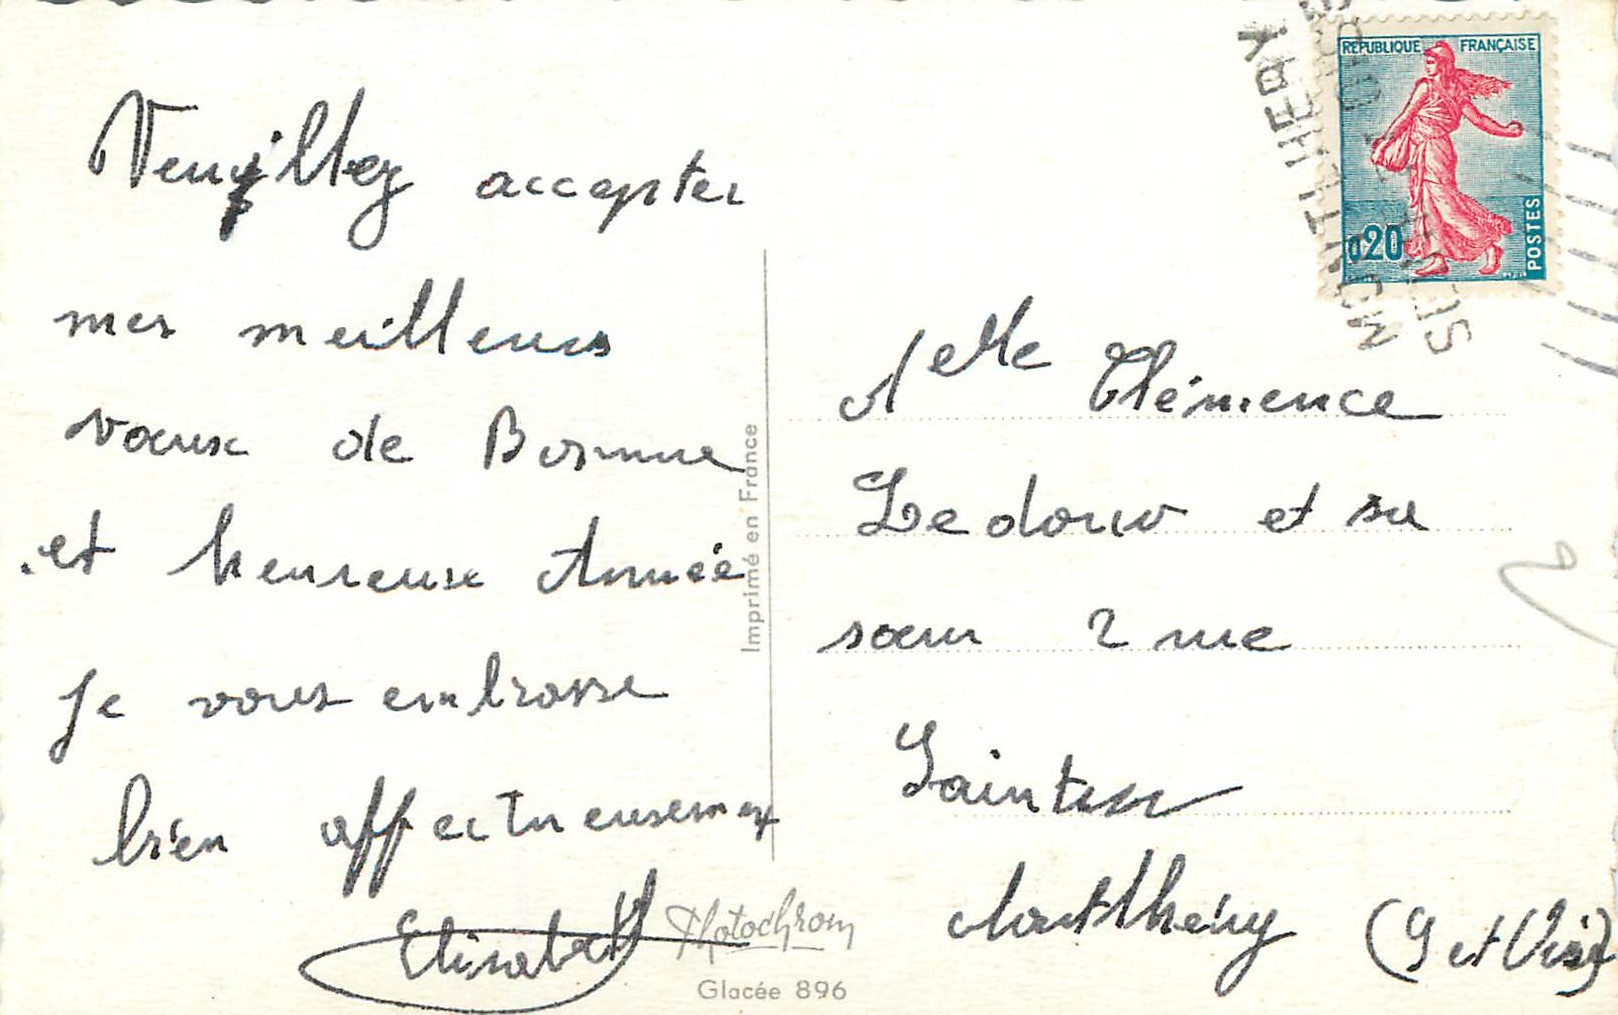 Veuillez accepter
mes meilleurs
vœux de Bonne
et heureuse Année
Je vous embrasse
bien affectueusement
Elisabeth
Photochrom
Glacée 896
Imprimé en France
RÉPUBLIQUE FRANÇAISE
0,20
POSTES
MONTLHERY
Melle Clémence
Ledoux et sa
sœur 2 rue
Montlhéry (S et Oise)